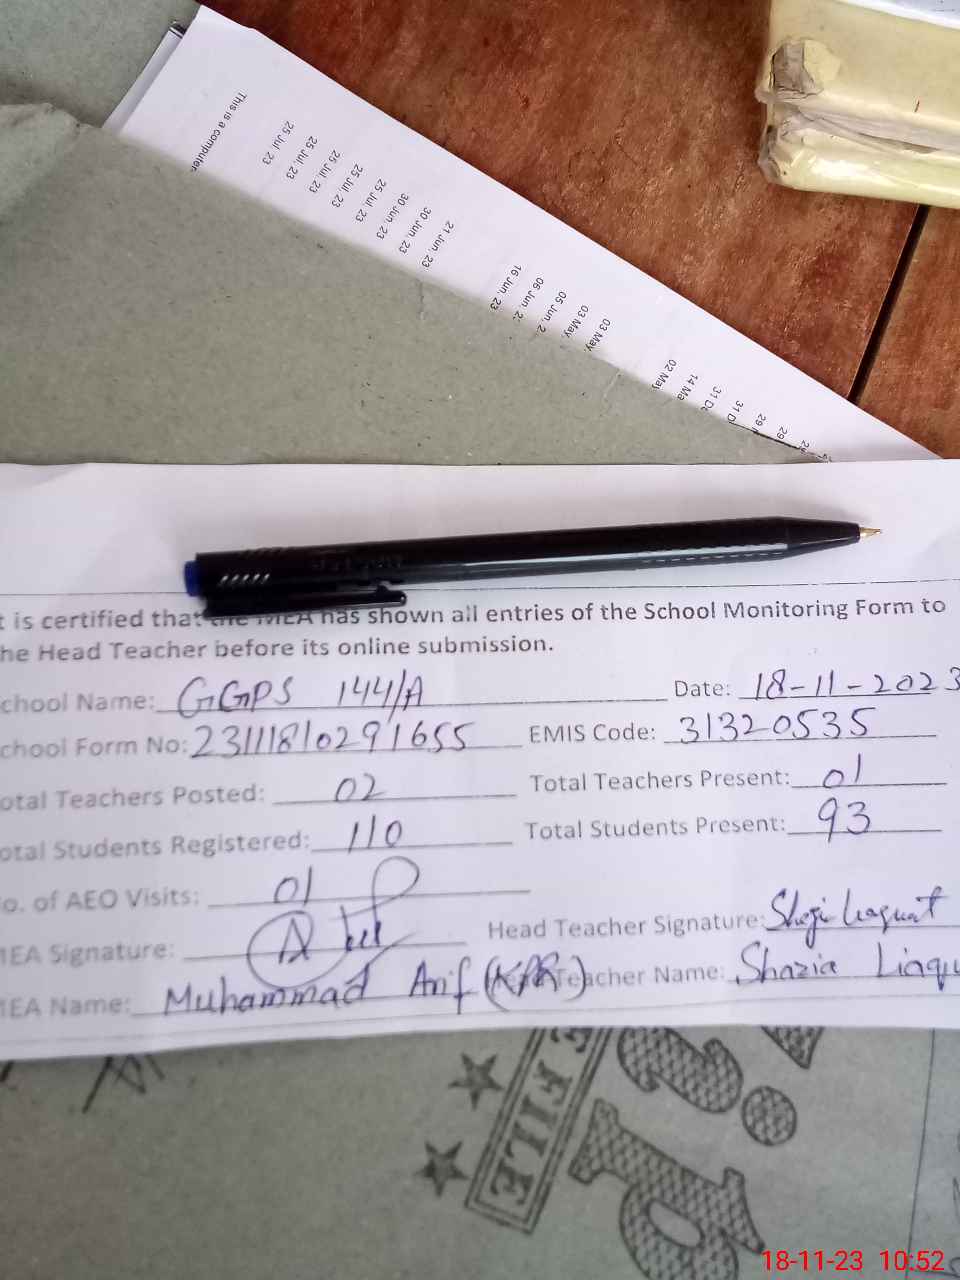 This is a computer
25 Jul, 23
25 Jul, 23
25 Jul, 23
25 Jul, 23
25 Jul, 23
30 Jun, 23
30 Jun, 23
21 Jun, 23
16 Jun, 23
06 Jun, 2
05 Jun, 2
03 May,
03 May,
02 May
14 Ma
31 D
31 D
29
29
t is certified that the MEA has shown all entries of the School Monitoring Form to
he Head Teacher before its online submission.
chool Name: GGPS 144/A Date: 18-11-2023
chool Form No: 23111810291655 EMIS Code: 31320535
otal Teachers Posted: 02 Total Teachers Present: 01
otal Students Registered: 110 Total Students Present: 93
o. of AEO Visits: 01
MEA Signature: Head Teacher Signature:
MEA Name: Muhammad Arif Teacher Name: Shazia Liaqu
FILE
18-11-23 10:52